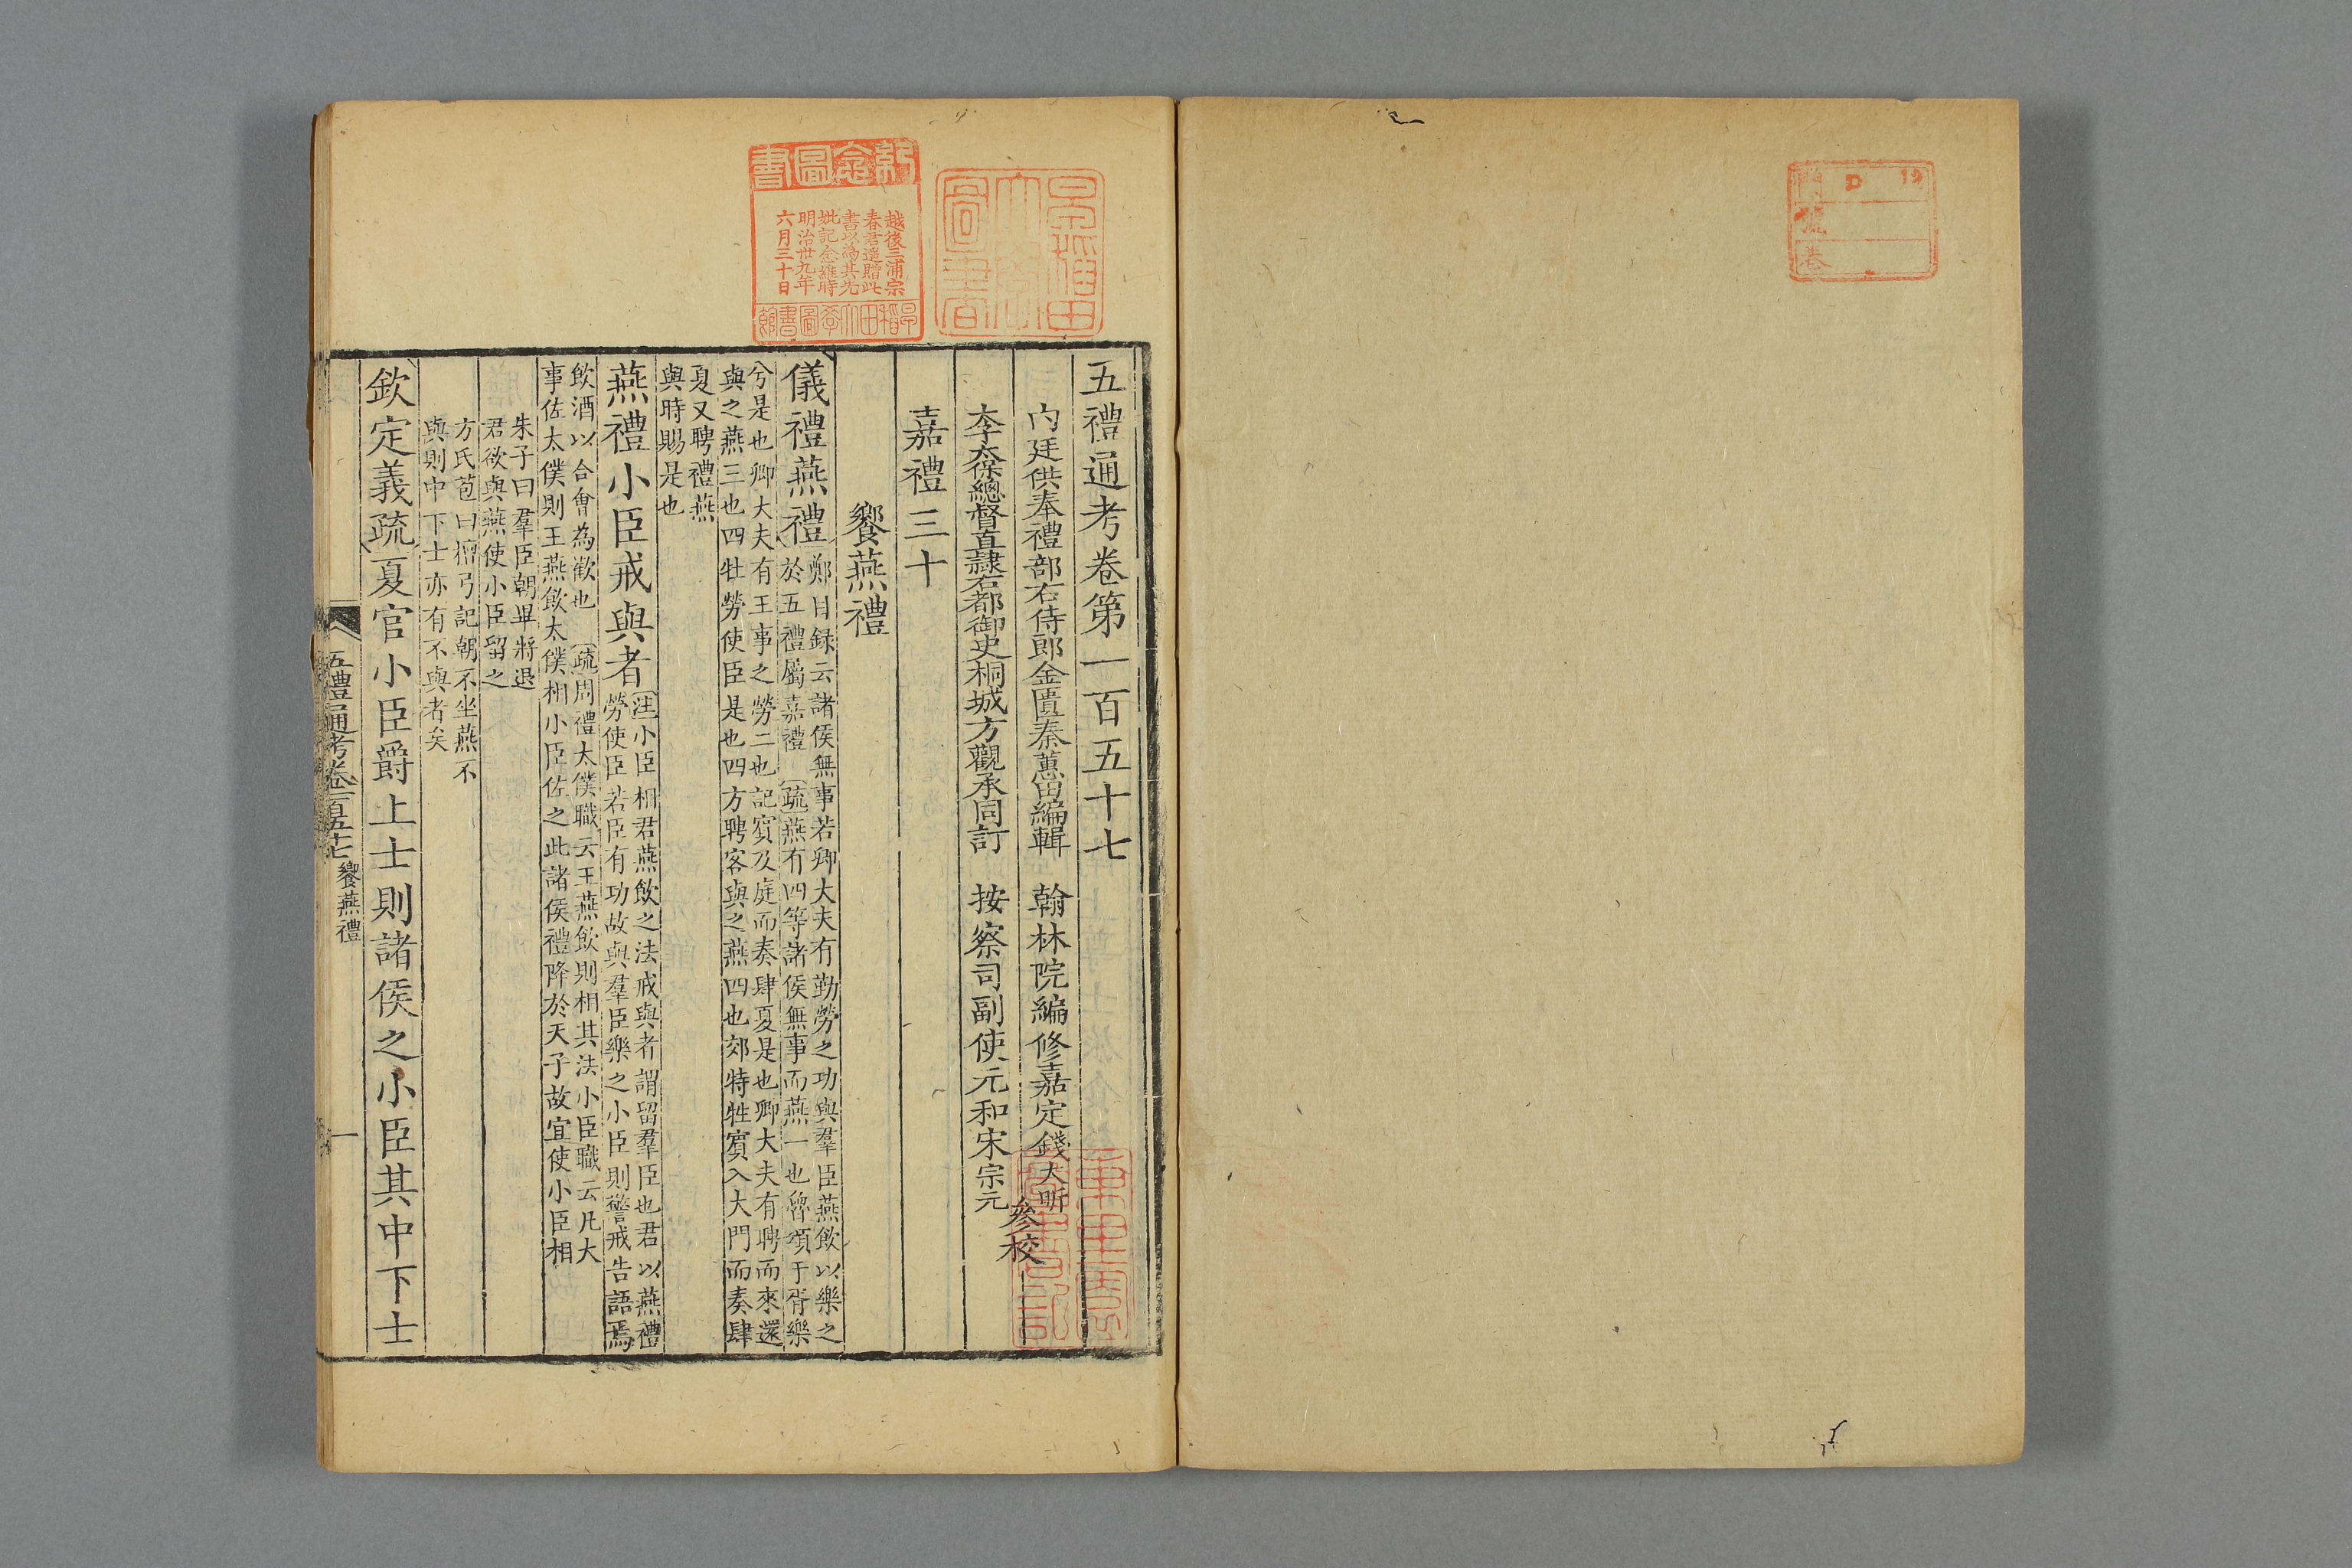 五禮通考卷第一百五十七
内廷供奉禮部右侍郎金匱秦蕙田編輯　翰林院編修嘉定錢大昕
太子太保總督直隷右都御史桐城方觀承同訂　按察司副使元和宋宗元
參校
嘉禮三十
饗燕禮
儀禮燕禮
鄭目録云諸侯無事若卿大夫有勤勞之功與羣臣燕飲以樂之
於五禮屬嘉禮　疏燕有四等諸侯無事而燕一也魯頌于胥樂
兮是也卿大夫有王事之勞二也記賓及庭而奏肆夏是也卿大夫有聘而來還
與之燕三也四牡勞使臣是也四方聘客與之燕四也郊特牲賓入大門而奏肆
夏又聘禮燕
與時賜是也
燕禮小臣戒與者
注小臣相君燕飲之法戒與者謂留羣臣也君以燕禮
勞使臣若臣有功故與羣臣樂之小臣則警戒告語焉
飲酒以合會為歡也　疏周禮大僕職云王燕飲則相其法小臣職云凡大
事佐太僕則王燕飲太僕相小臣佐之此諸侯禮降於天子故宜使小臣相
朱子曰羣臣朝畢將退
君欲與燕使小臣留之
方氏苞曰檀弓記朝不坐燕不
與則中下士亦有不與者矣
欽定義疏夏官小臣爵上士則諸侯之小臣其中下士
五禮通考卷一百五十七　饗燕禮
一
紀念圖書
越後三浦宗
春君遥贈此
書以為其先
妣記念維時
明治卅九年
六月三十日
早稲田大學圖書館
早稲田大學圖書
門
號
巻
D
19